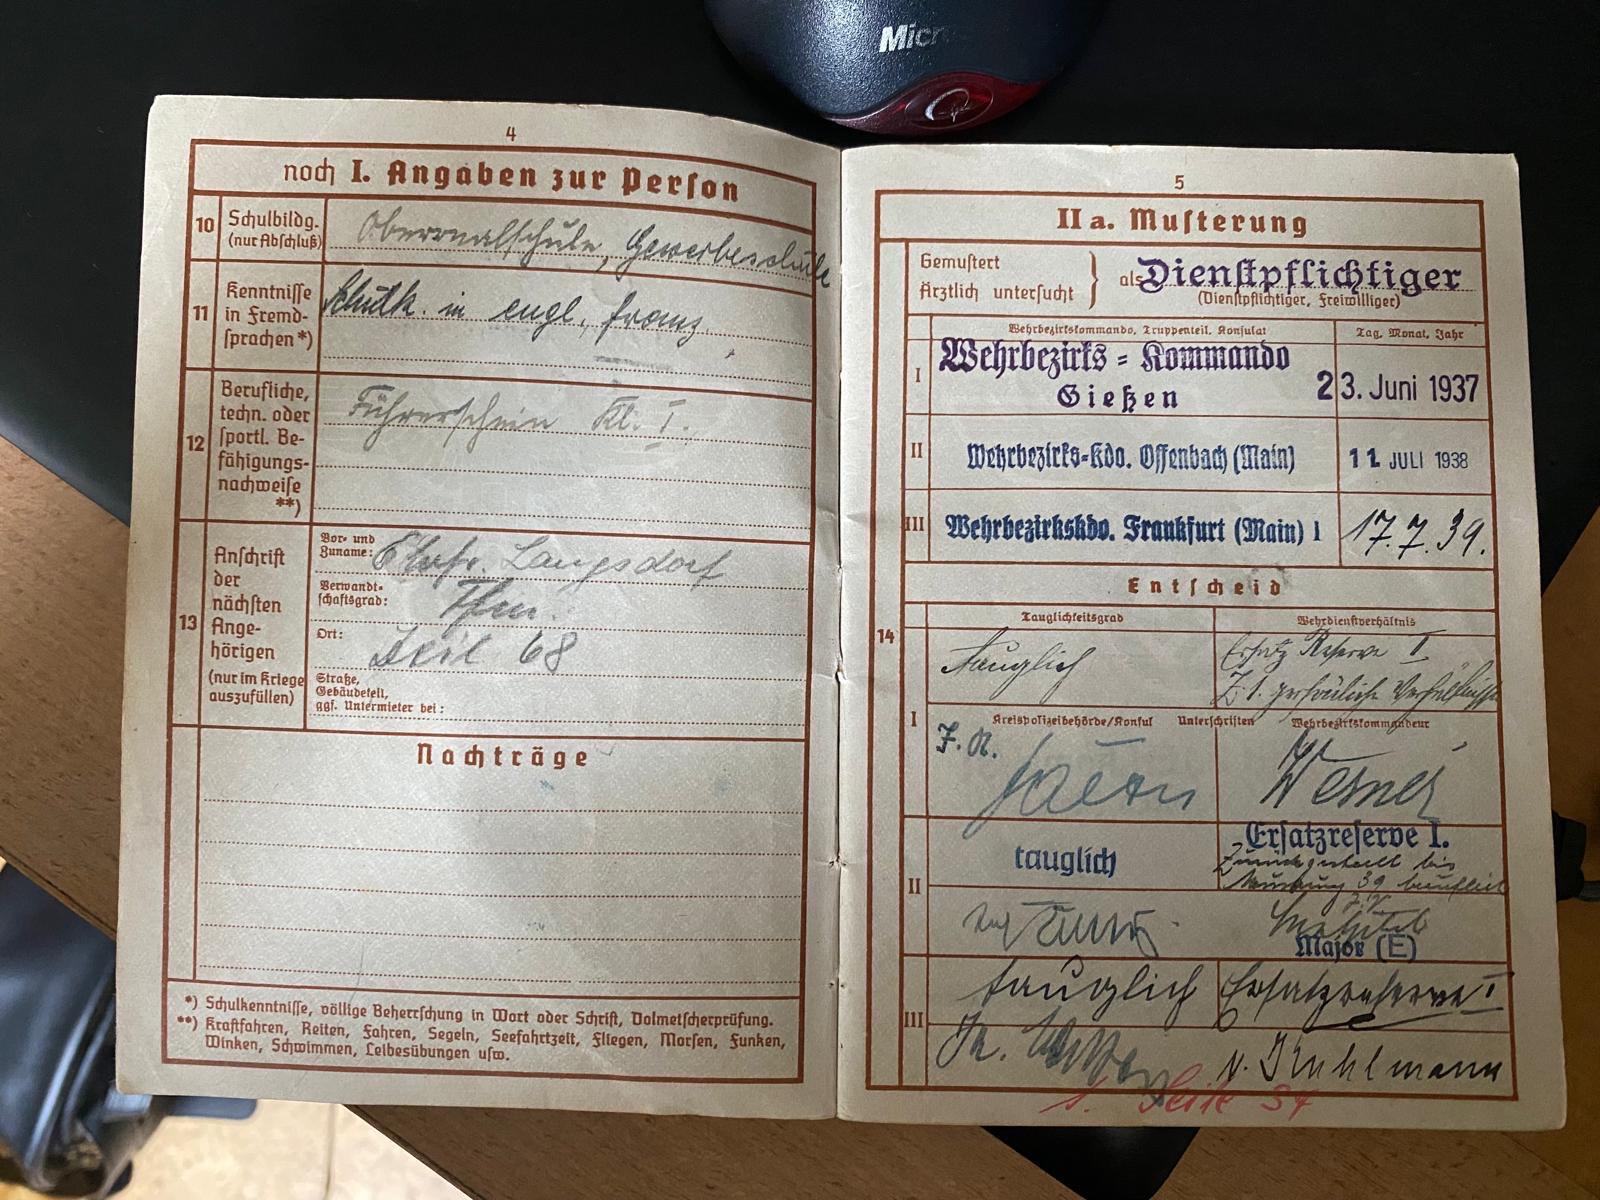 Micro
4
noch I. Angaben zur Person
10 Schulbildg. (nur Abschluß)
Oberrealschule, Gewerbeschule
11 Kenntnisse in Fremdsprachen *)
Schulk. in engl., franz.
12 Berufliche, techn. oder sportl. Befähigungsnachweise **)
Führerschein Kl. I.
13 Anschrift der nächsten Angehörigen (nur im Kriege auszufüllen)
Vor- und Zuname: Langsdorf
Verwandtschaftsgrad:
Ort: 68
Straße, Gebäudeteil, ggf. Untermieter bei:
Nachträge
*) Schulkenntnisse, völlige Beherrschung in Wort oder Schrift, Dolmetscherprüfung.
**) Kraftfahren, Reiten, Fahren, Segeln, Seefahrtzeit, Fliegen, Morsen, Funken,
Winken, Schwimmen, Leibesübungen usw.
5
II a. Musterung
14
Gemustert
Ärztlich untersucht } als Dienstpflichtiger
(Dienstpflichtiger, Freiwilliger)
Wehrbezirkskommando, Truppenteil, Konsulat Tag, Monat, Jahr
I Wehrbezirks-Kommando
Gießen 23. Juni 1937
II Wehrbezirks-Kdo. Offenbach (Main) 11. JULI 1938
III Wehrbezirkskdo. Frankfurt (Main) 1 17.7.39.
Entscheid
Tauglichkeitsgrad Wehrdienstverhältnis
I Tauglich Ersatz Reserve I
persönliche Verhältnisse
Kreispolizeibehörde/Konsul Unterschriften Wehrbezirkskommandeur
Werner
II tauglich Ersatzreserve I.
Zurückgestellt bis
Musterung 39 beruflich
Major (E)
III tauglich Ersatzreserve I
v. Kuhlmann
s. Seite 34